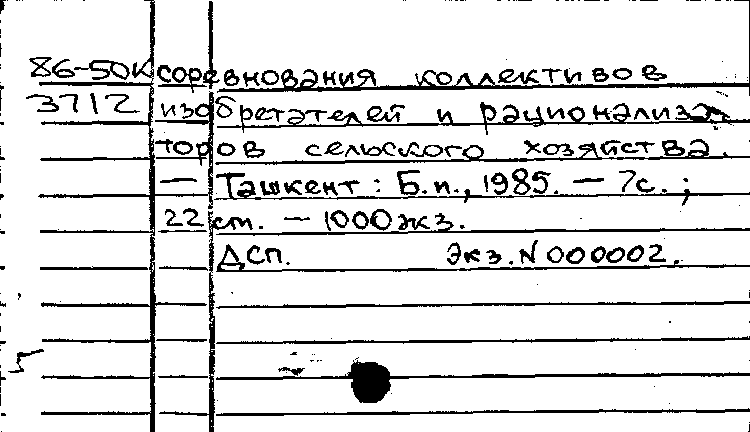 86-50К соревнования коллективов
3712 изобретателей и рационализа-
торов сельского хозяйства.
— Ташкент: Б.и., 1985. — 7с.;
22 см. — 1000 экз.
ДСП. Экз. N 000002.
5